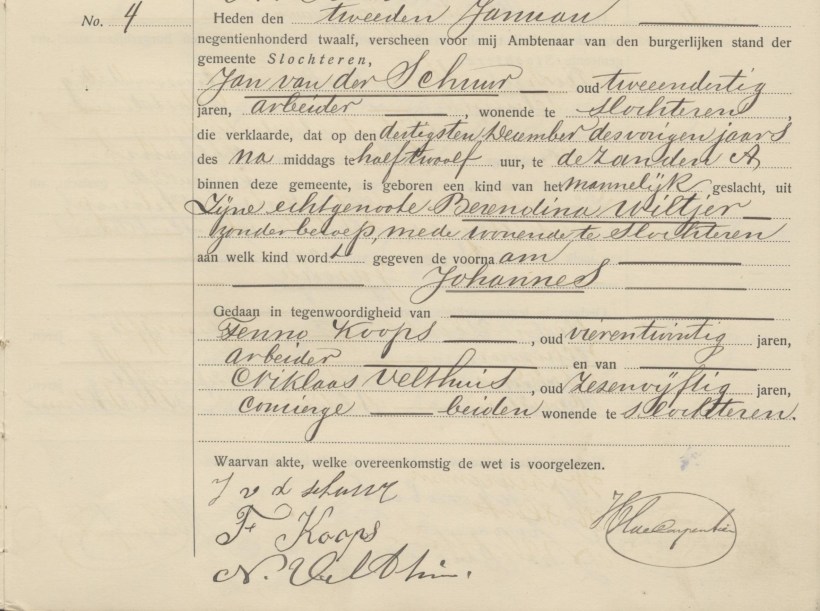 No. 4
Heden den tweeden Januari
negentienhonderd twaalf, verscheen voor mij Ambtenaar van den burgerlijken stand der
gemeente Slochteren,
Jan van der Schuur oud tweeendertig
jaren, arbeider, wonende te Slochteren,
die verklaarde, dat op den dertigsten December des vorigen jaars
des na middags te half twaalf uur, te de Zanden A,
binnen deze gemeente, is geboren een kind van het mannelijk geslacht, uit
Zijne echtgenoote Berendina Wiltjer
zonder beroep, mede wonende te Slochteren
aan welk kind wordt gegeven de voornaam
Johannes
Gedaan in tegenwoordigheid van
Fenno Koops, oud vierentwintig jaren,
arbeider en van
Niklaas Velthuis, oud zesenvijftig jaren,
concierge beiden wonende te Slochteren.
Waarvan akte, welke overeenkomstig de wet is voorgelezen.
J v d schuur
F Koops
N. Velthuis.